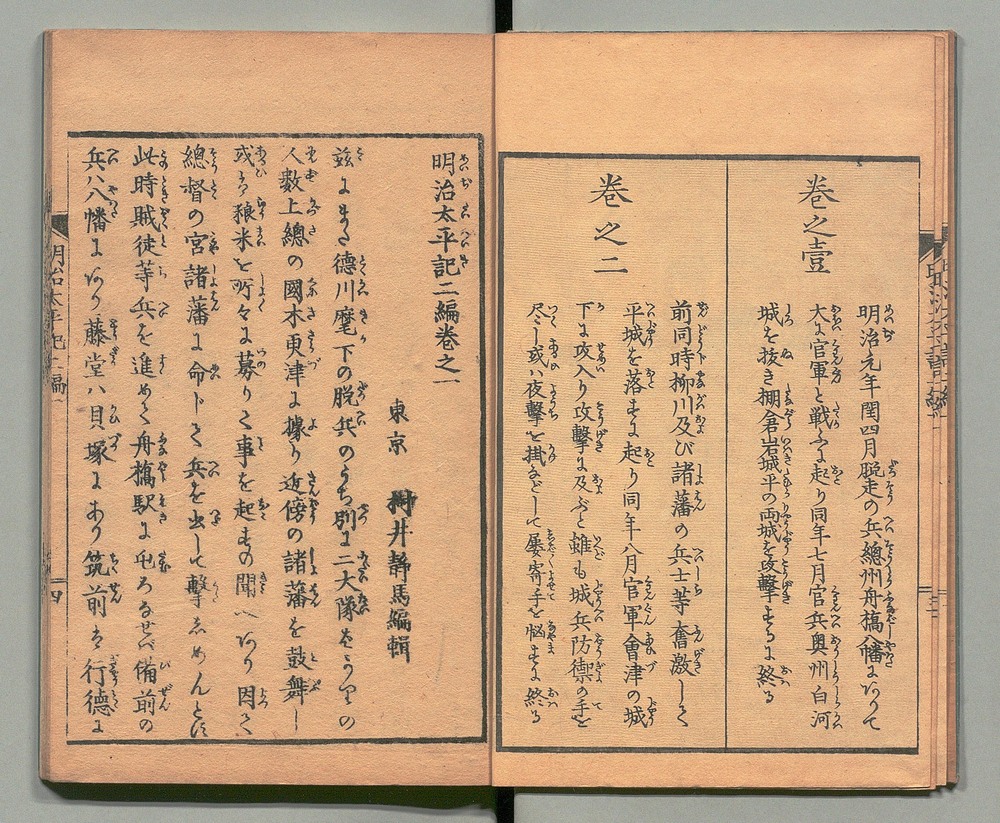 巻之壹
明治元年閏四月脱走の兵總州舟橋八幡にゐて
大に官軍と戦ふに起り同年七月官兵奥州白河
城を抜き棚倉岩城平の両城を攻撃するに終る
巻之二
前同時柳川及び諸藩の兵士等奮激して
平城を落すに起り同年八月官軍會津の城
下に攻入り攻撃に及ぶと雖も城兵防禦の手を
尽し或ハ夜撃を掛などして屡寄手を悩すに終る
明治太平記二編巻之一
東京 村井静馬編輯
茲にまた德川麾下の脱兵のうち別に二大隊をうりの
人數上總の國木更津に據り近傍の諸藩を鼓舞し
或は粮米を所々に募りて事を起すの聞へあり因て
總督の宮諸藩に命じて兵を出して撃しめんとに
此時賊徒等兵を進めて舟橋駅に屯ろなせバ備前の
兵ハ八幡にあり藤堂ハ貝塚にあり筑前は行德に
明治太平記二編
四